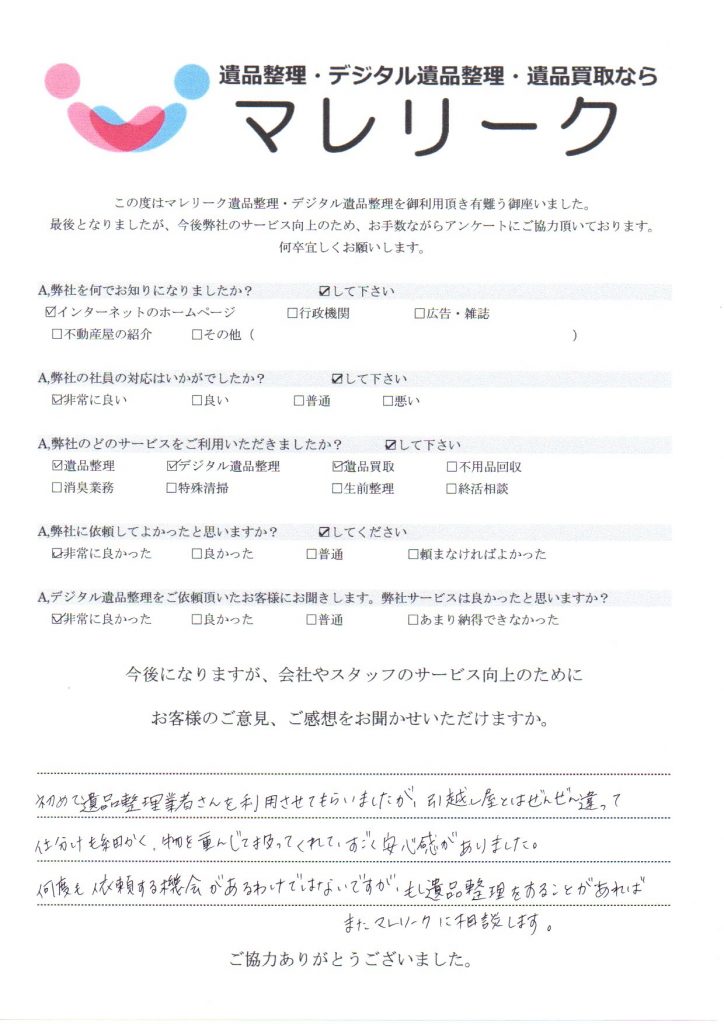 遺品整理・デジタル遺品整理・遺品買取なら
マレリーク
この度はマレリーク遺品整理・デジタル遺品整理を御利用頂き有難う御座いました。
最後となりましたが、今後弊社のサービス向上のため、お手数ながらアンケートにご協力頂いております。
何卒宜しくお願いします。
A,弊社を何でお知りになりましたか？ ☑して下さい
☑インターネットのホームページ □行政機関 □広告・雑誌
□不動産屋の紹介 □その他（ ）
A,弊社の社員の対応はいかがでしたか？ ☑して下さい
☑非常に良い □良い □普通 □悪い
A,弊社のどのサービスをご利用いただきましたか？ ☑して下さい
☑遺品整理 ☑デジタル遺品整理 ☑遺品買取 □不用品回収
□消臭業務 □特殊清掃 □生前整理 □終活相談
A,弊社に依頼してよかったと思いますか？ ☑してください
☑非常に良かった □良かった □普通 □頼まなければよかった
A,デジタル遺品整理をご依頼頂いたお客様にお聞きします。弊社サービスは良かったと思いますか？
☑非常に良かった □良かった □普通 □あまり納得できなかった
今後になりますが、会社やスタッフのサービス向上のために
お客様のご意見、ご感想をお聞かせいただけますか。
初めて遺品整理業者さんを利用させてもらいましたが、引越し屋とはぜんぜん違って
仕分けも細かく、物を重んじて扱ってくれて、すごく安心感がありました。
何度も依頼する機会があるわけではないですが、もし遺品整理をすることがあれば
またマレリークに相談します。
ご協力ありがとうございました。